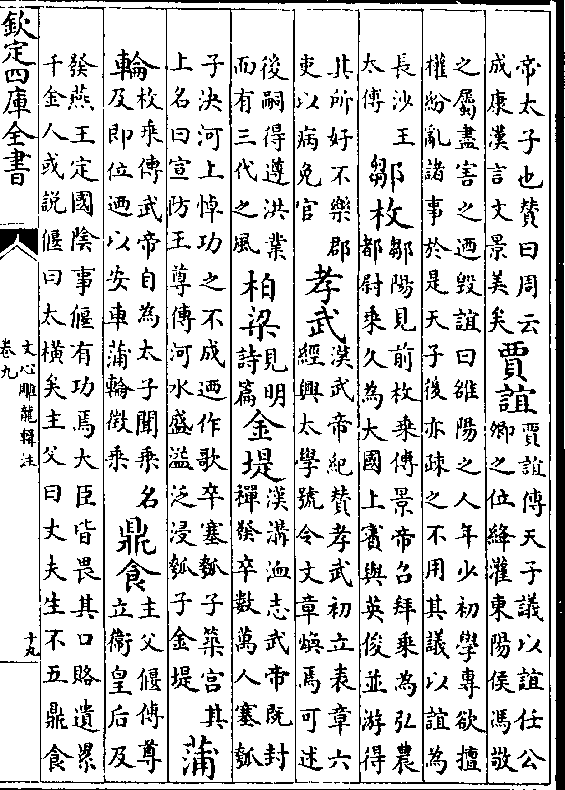 帝太子也贊曰周云
成康漢言文景美矣
賈誼
賈誼傳天子議以誼任公
卿之位絳灌東陽侯馮敬
之屬盡害之迺毁誼曰雒陽之人年少初學專欲擅
權紛亂諸事於是天子後亦疎之不用其議以誼為
長沙王
太傅
鄒枚
鄒陽見前枚乗傳景帝召拜乗為弘農
都尉乗久為大國上賓與英俊並游得
其所好不樂郡
吏以病免官
孝武
漢武帝紀贊孝武初立表章六
經興太學號令文章煥焉可述
後嗣得遵洪業
而有三代之風
柏梁
見明
詩篇
金堤
漢溝洫志武帝既封
禪發卒數萬人塞瓠
子決河上悼功之不成迺作歌卒塞瓠子築宫其
上名曰宣防王尊傳河水盛溢泛浸瓠子金堤
蒲
輪
枚乗傳武帝自為太子聞乗名
及即位迺以安車蒲輪徵乗
鼎食
主父偃傳尊
立衞皇后及
發燕王定國陰事偃有功焉大臣皆畏其口賂遺累
千金人或說偃曰太橫矣主父曰丈夫生不五鼎食
欽定四庫全書
文心雕龍輯注
卷九
十九